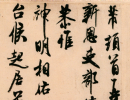 頓首
新恩吏部
恭惟
神明相佑
台候起居